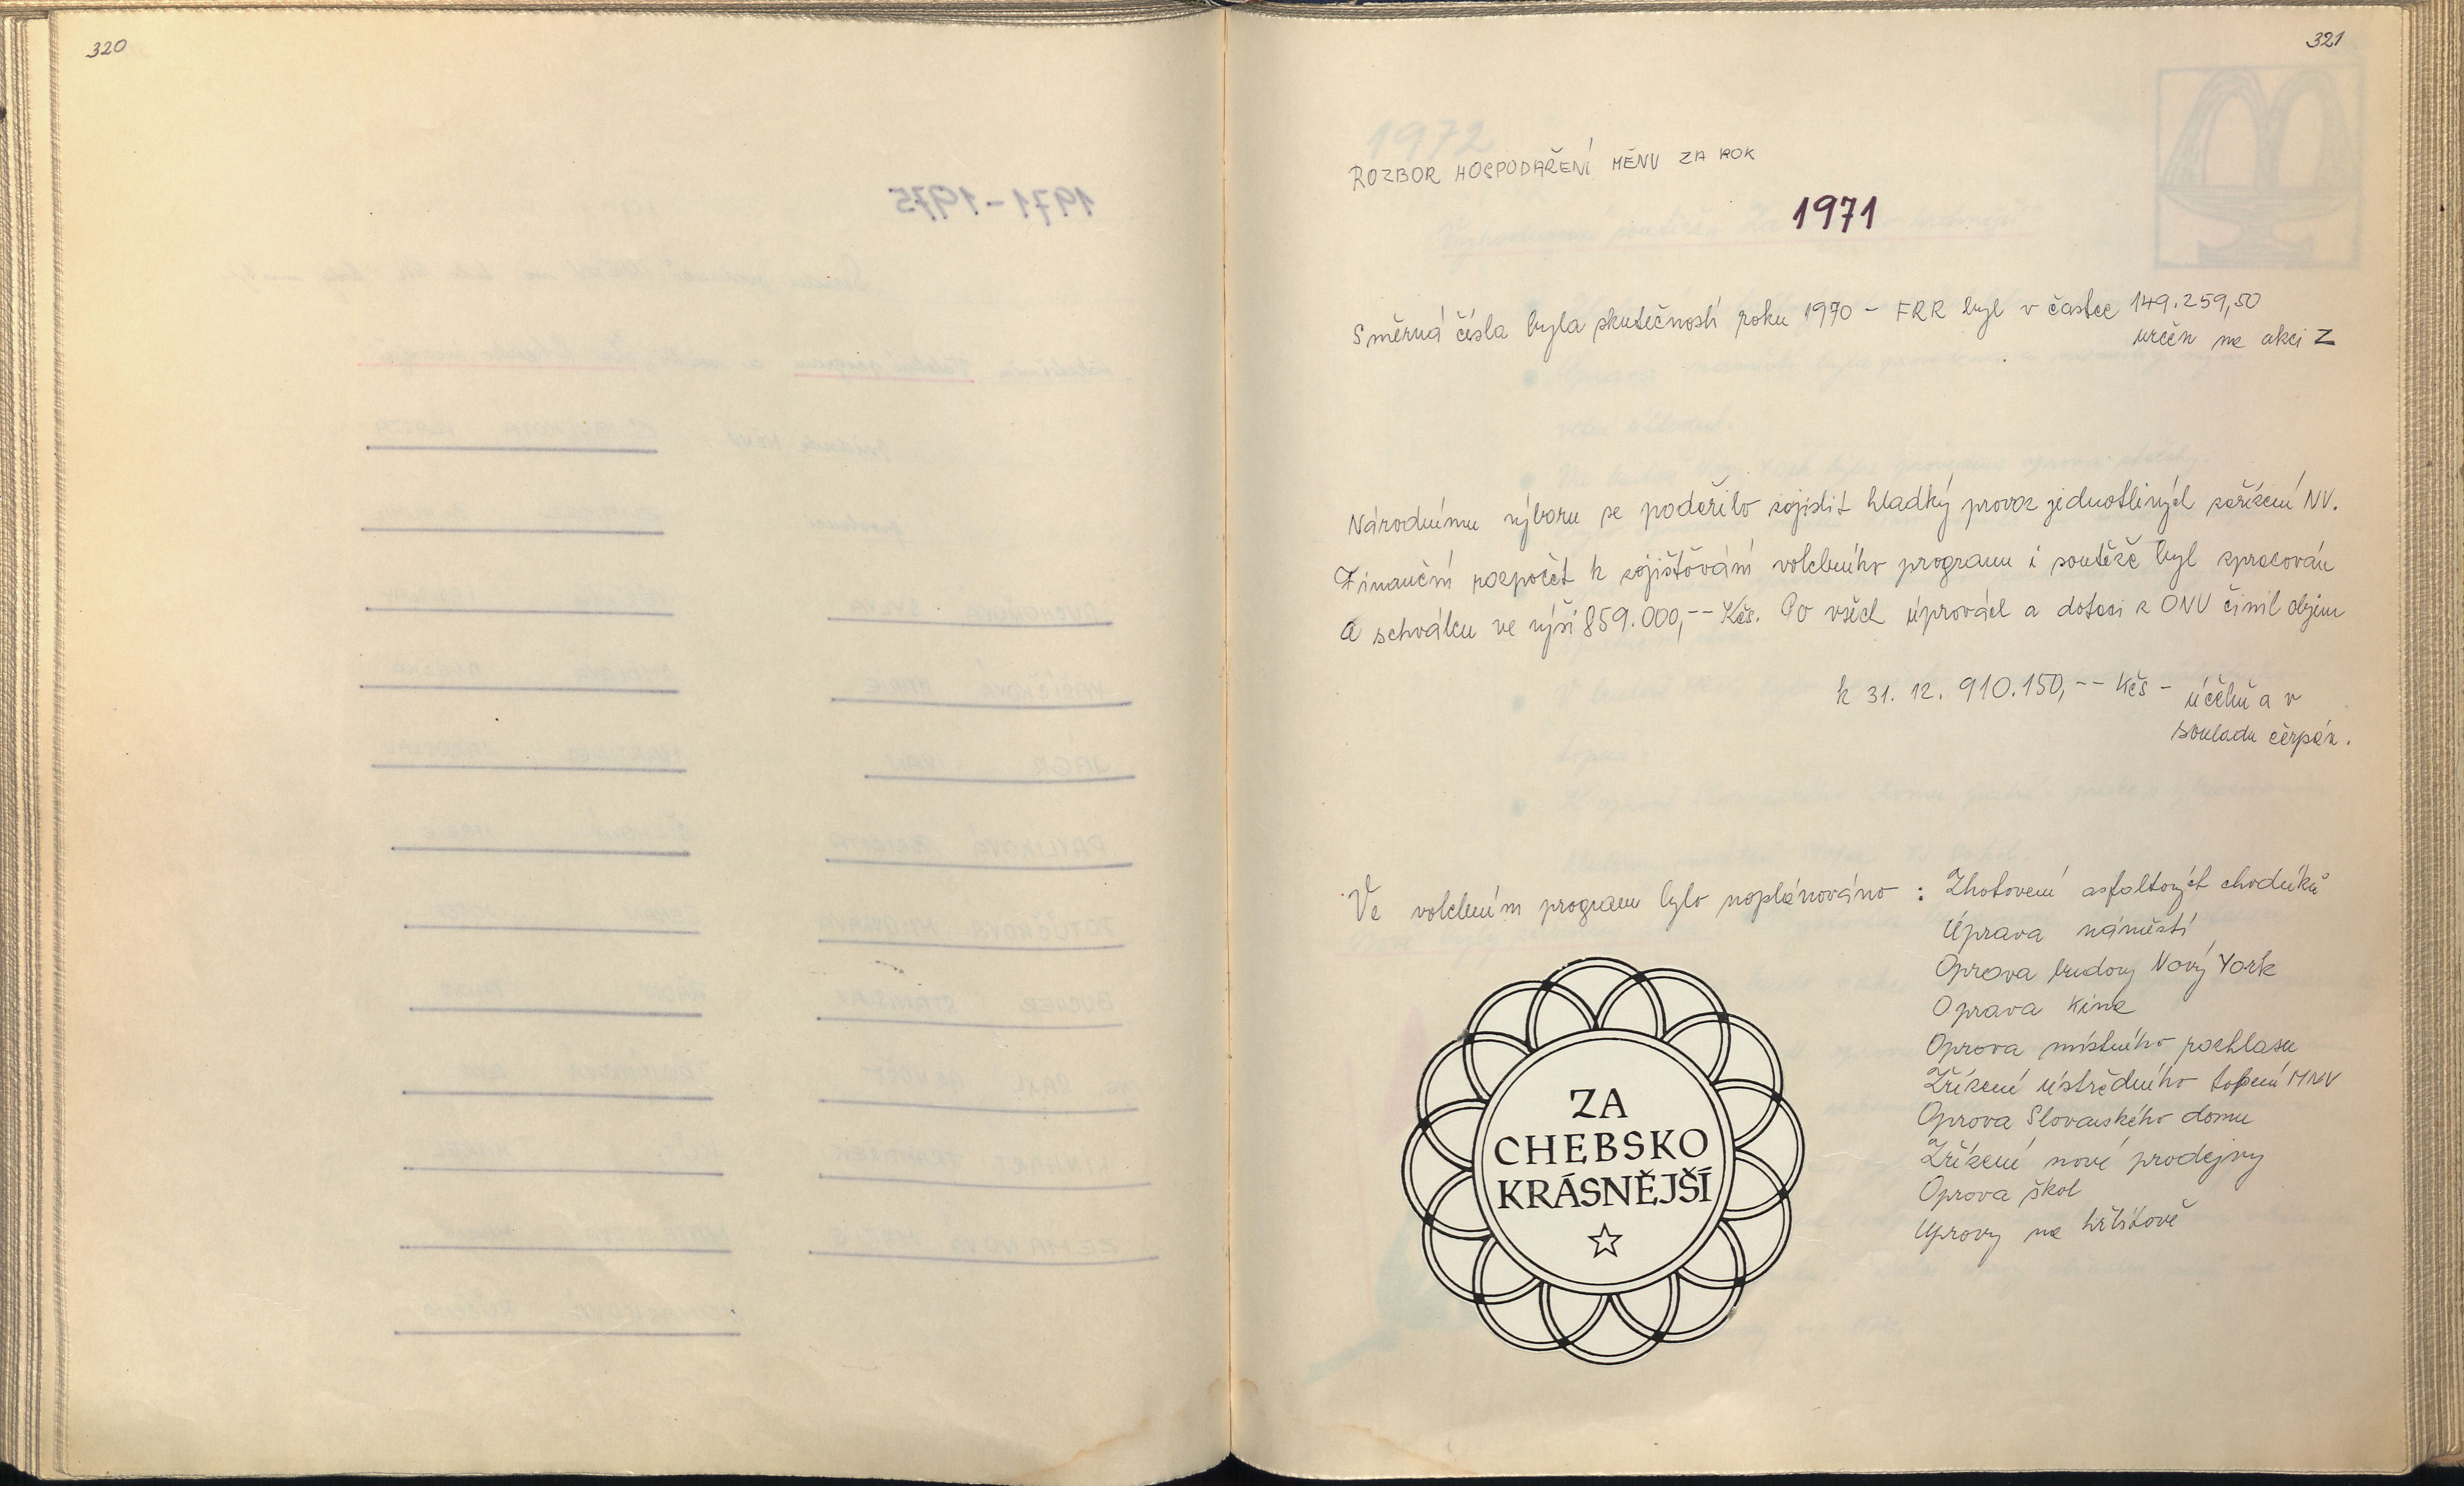 320
321
ROZBOR HOSPODAŘENÍ MĚNV ZA ROK
1971
Směrná čísla byla skutečností roku 1970 - FRR byl v částce 149.259,50
určen na akci Z
Národnímu výboru se podařilo zajistit hladký provoz jednotlivých zařízení NV.
Finanční rozpočet k zajišťování volebního programu i soutěže byl zpracován
a schválen ve výši 859.000,-- Kčs. Po všech úpravách a dotaci z ONV činil objem
k 31. 12. 910.150,-- Kčs - účelně a v
souladu čerpán.
Ve volebním program bylo naplánováno : Zhotovení asfaltových chodníků
Úprava náměstí
Oprava budovy Nový York
Oprava kina
Oprava místního rozhlasu
Zřízení ústředního topení MNV
Oprava Slovanského domu
Zřízení nové prodejny
Oprava škol
Úpravy na hřbitově
ZA
CHEBSKO
KRÁSNĚJŠÍ